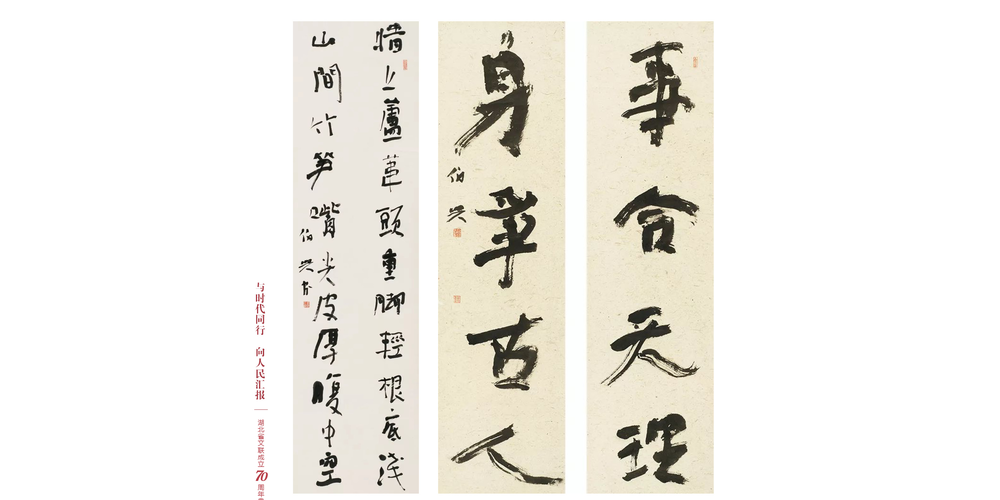 事合天理
身古人
伯
墙上蘆葦頭重脚輕根底淺
山間竹笋嘴尖皮厚腹中空
伯
与时代同行 向人民汇报
湖北省文联成立70周年